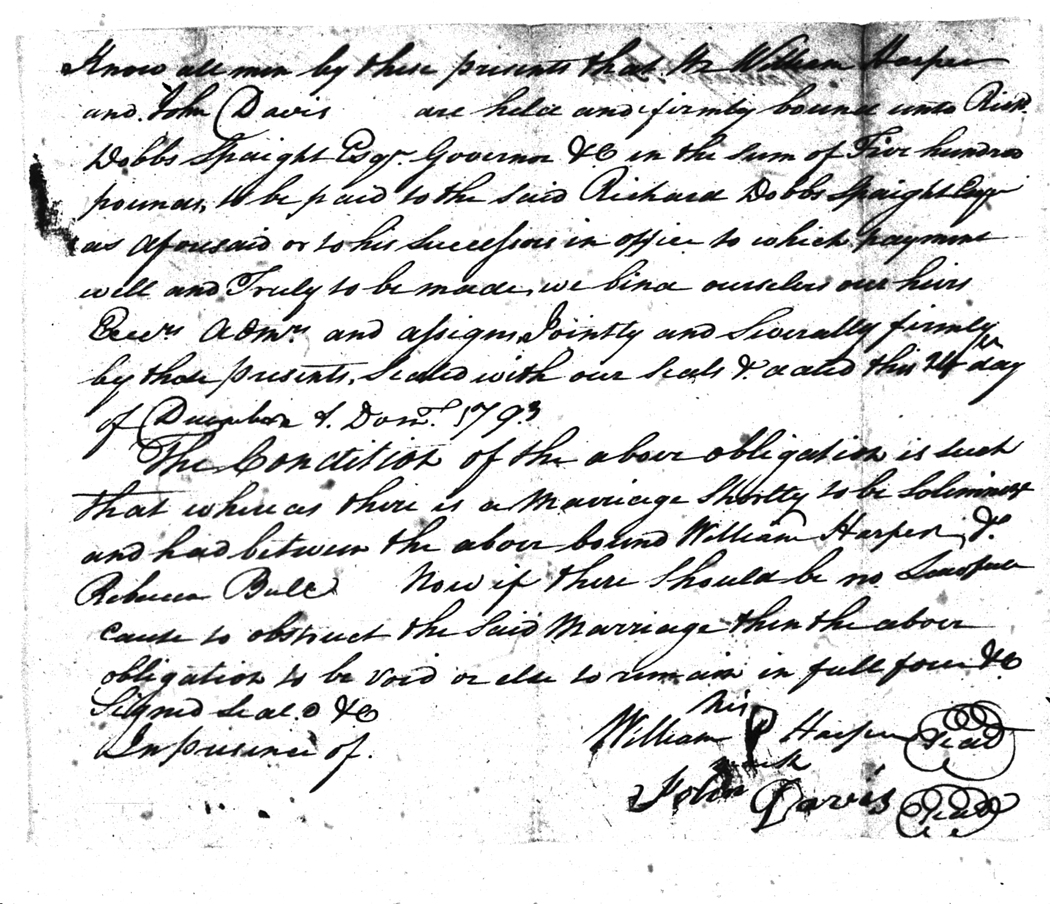 Know all men by these presents that We William Harper
and John Davis are held and firmly bound unto Richd.
Dobbs Spaight Esqr. Governor &C in the sum of Five hundred
pounds, to be paid to the said Richard Dobbs Spaight Esqr
as aforesaid or to his Successors in office to which payment
well and Truly to be made, we bind ourselves our heirs
Execrs. Admrs. and assigns Jointly and Severally firmly
by these presents, Sealed with our Seals & dated this 24th day
of December A. Dom. 1793
The Condition of the above obligation is such
that whereas there is a Marriage Shortly to be Solemnized
and had between the above bound William Harper &
Rebecca Bull Now if there should be no Lawful
cause to obstruct the Said Marriage then the above
obligation to be void or else to remain in full force &C
Signed Seal.d &C
In presence of.
his
William P Harper Seal
mark
John Davis Seal